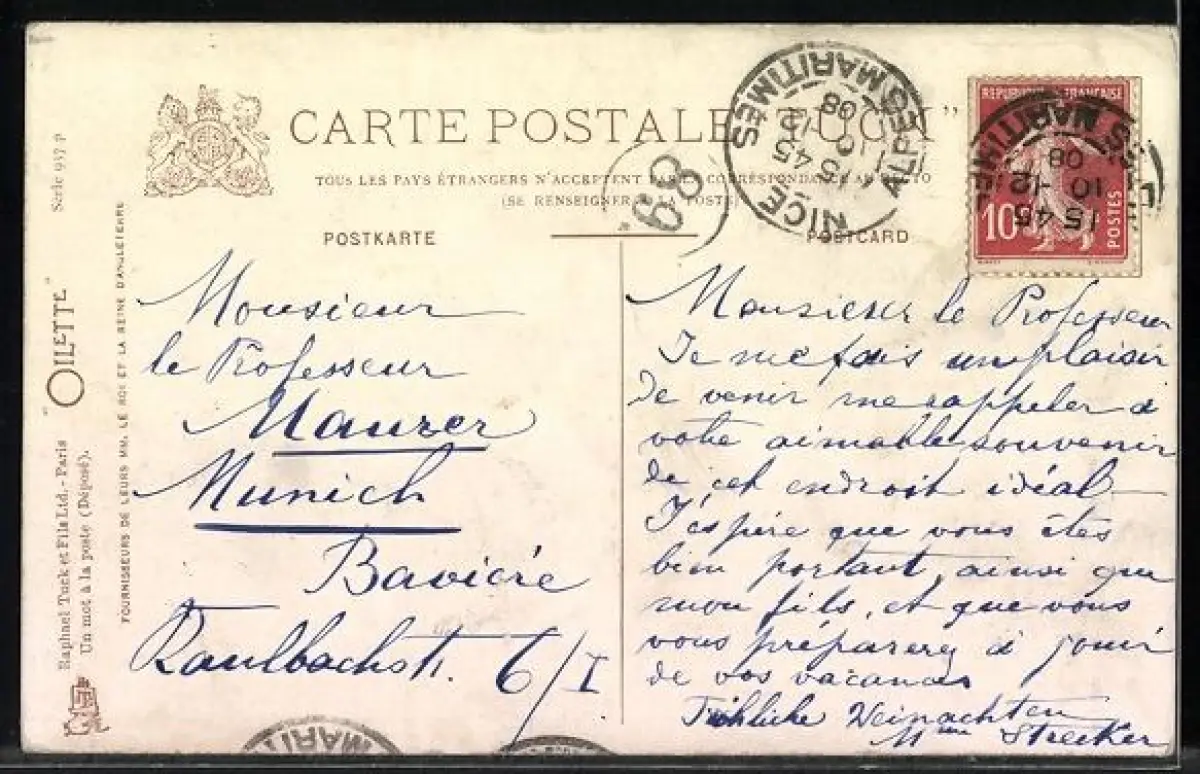 CARTE POSTALE "TUCK"
TOUS LES PAYS ÉTRANGERS N'ACCEPTENT PAS LA CORRESPONDANCE AU RECTO
(SE RENSEIGNER À LA POSTE)
POSTKARTE
POSTCARD
Série 937 P
"OILETTE"
Raphael Tuck et Fils Ltd. - Paris
Un mot à la poste (Déposé).
FOURNISSEURS DE LEURS MM. LE ROI ET LA REINE D'ANGLETERRE
68
NICE
ALPES MARITIMES
15 45
10 -12
08
REPUBLIQUE FRANÇAISE
10
POSTES
15 45
10 -12
08
Monsieur
le Professeur
Maurer
Munich
Bavière
Kaulbachstr. 6/I
Monsieur le Professeur
Je me fais un plaisir
de venir me rappeler à
votre aimable souvenir
de cet endroit idéal
J'éspère que vous êtes
bien portant, ainsi que
mon fils, et que vous
vous préparerez à jouir
de vos vacances
Fröhliche Weinachten
Mme Strecker
MARITI